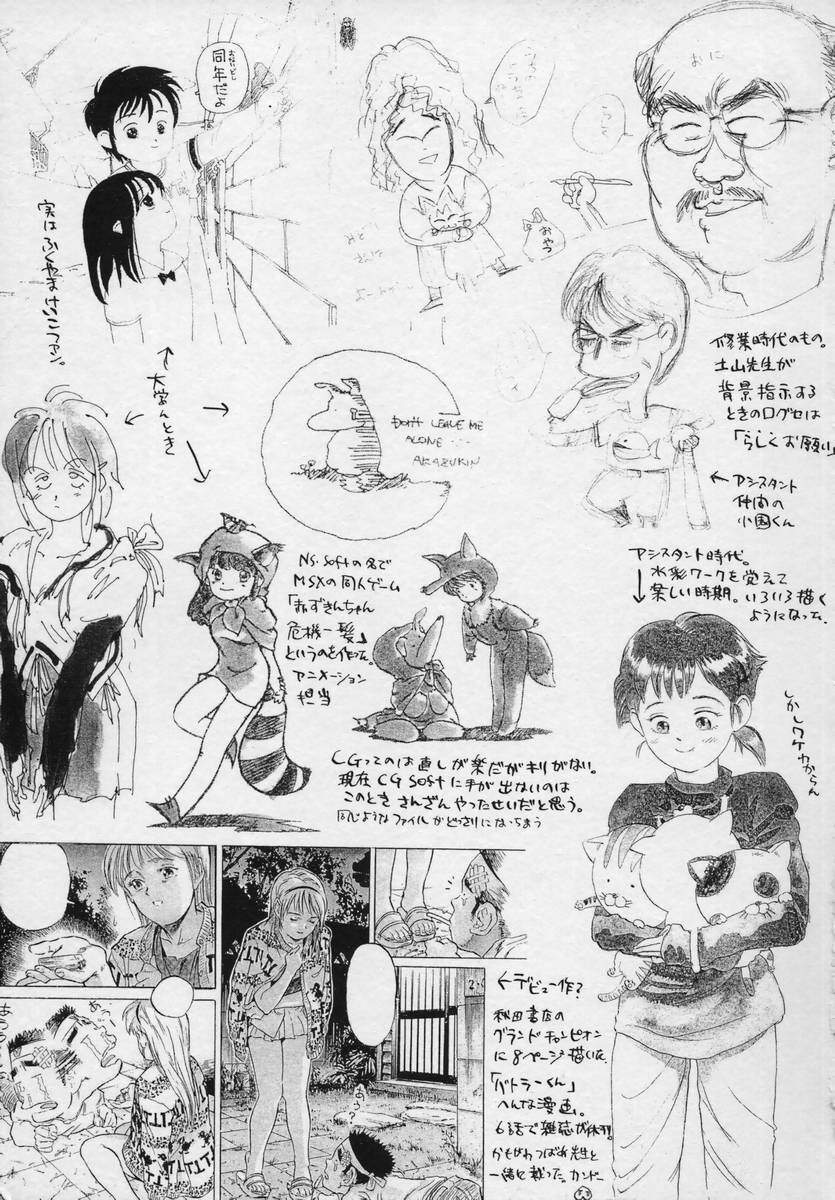 おないどし
同年だよ
実はふくやまけいこファン。
おに
おやつ
修業時代のもの。
土山先生が
背景指示する
ときのログセは
「らしくお願い」
←アシスタント
仲間の
小国くん
↑
大学んとき
DON'T LEAVE ME
ALONE…
AKAZUKIN
NS・Softの名で
MSXの同人ゲーム
「赤ずきんちゃん
危機一髪」
というのを作った。
アニメーション
担当
アシスタント時代。
水彩ワークを覚えて
楽しい時期。いろいろ描く
ようになった。
しかしワケわからん
CGってのは直しが楽だがキリがない。
現在CG Softに手が出ないのは
このとき さんざんやったせいだと思う。
同じようなファイルがどっさりになっちまう
←デビュー作?
秋田書店の
グランドチャンピオン
に8ページ描いた。
「バトラーくん」
へんな漫画。
6話で雑誌が休刊。
かもがわつばめ先生と
一緒に載った。カンドー
あうー
あう?